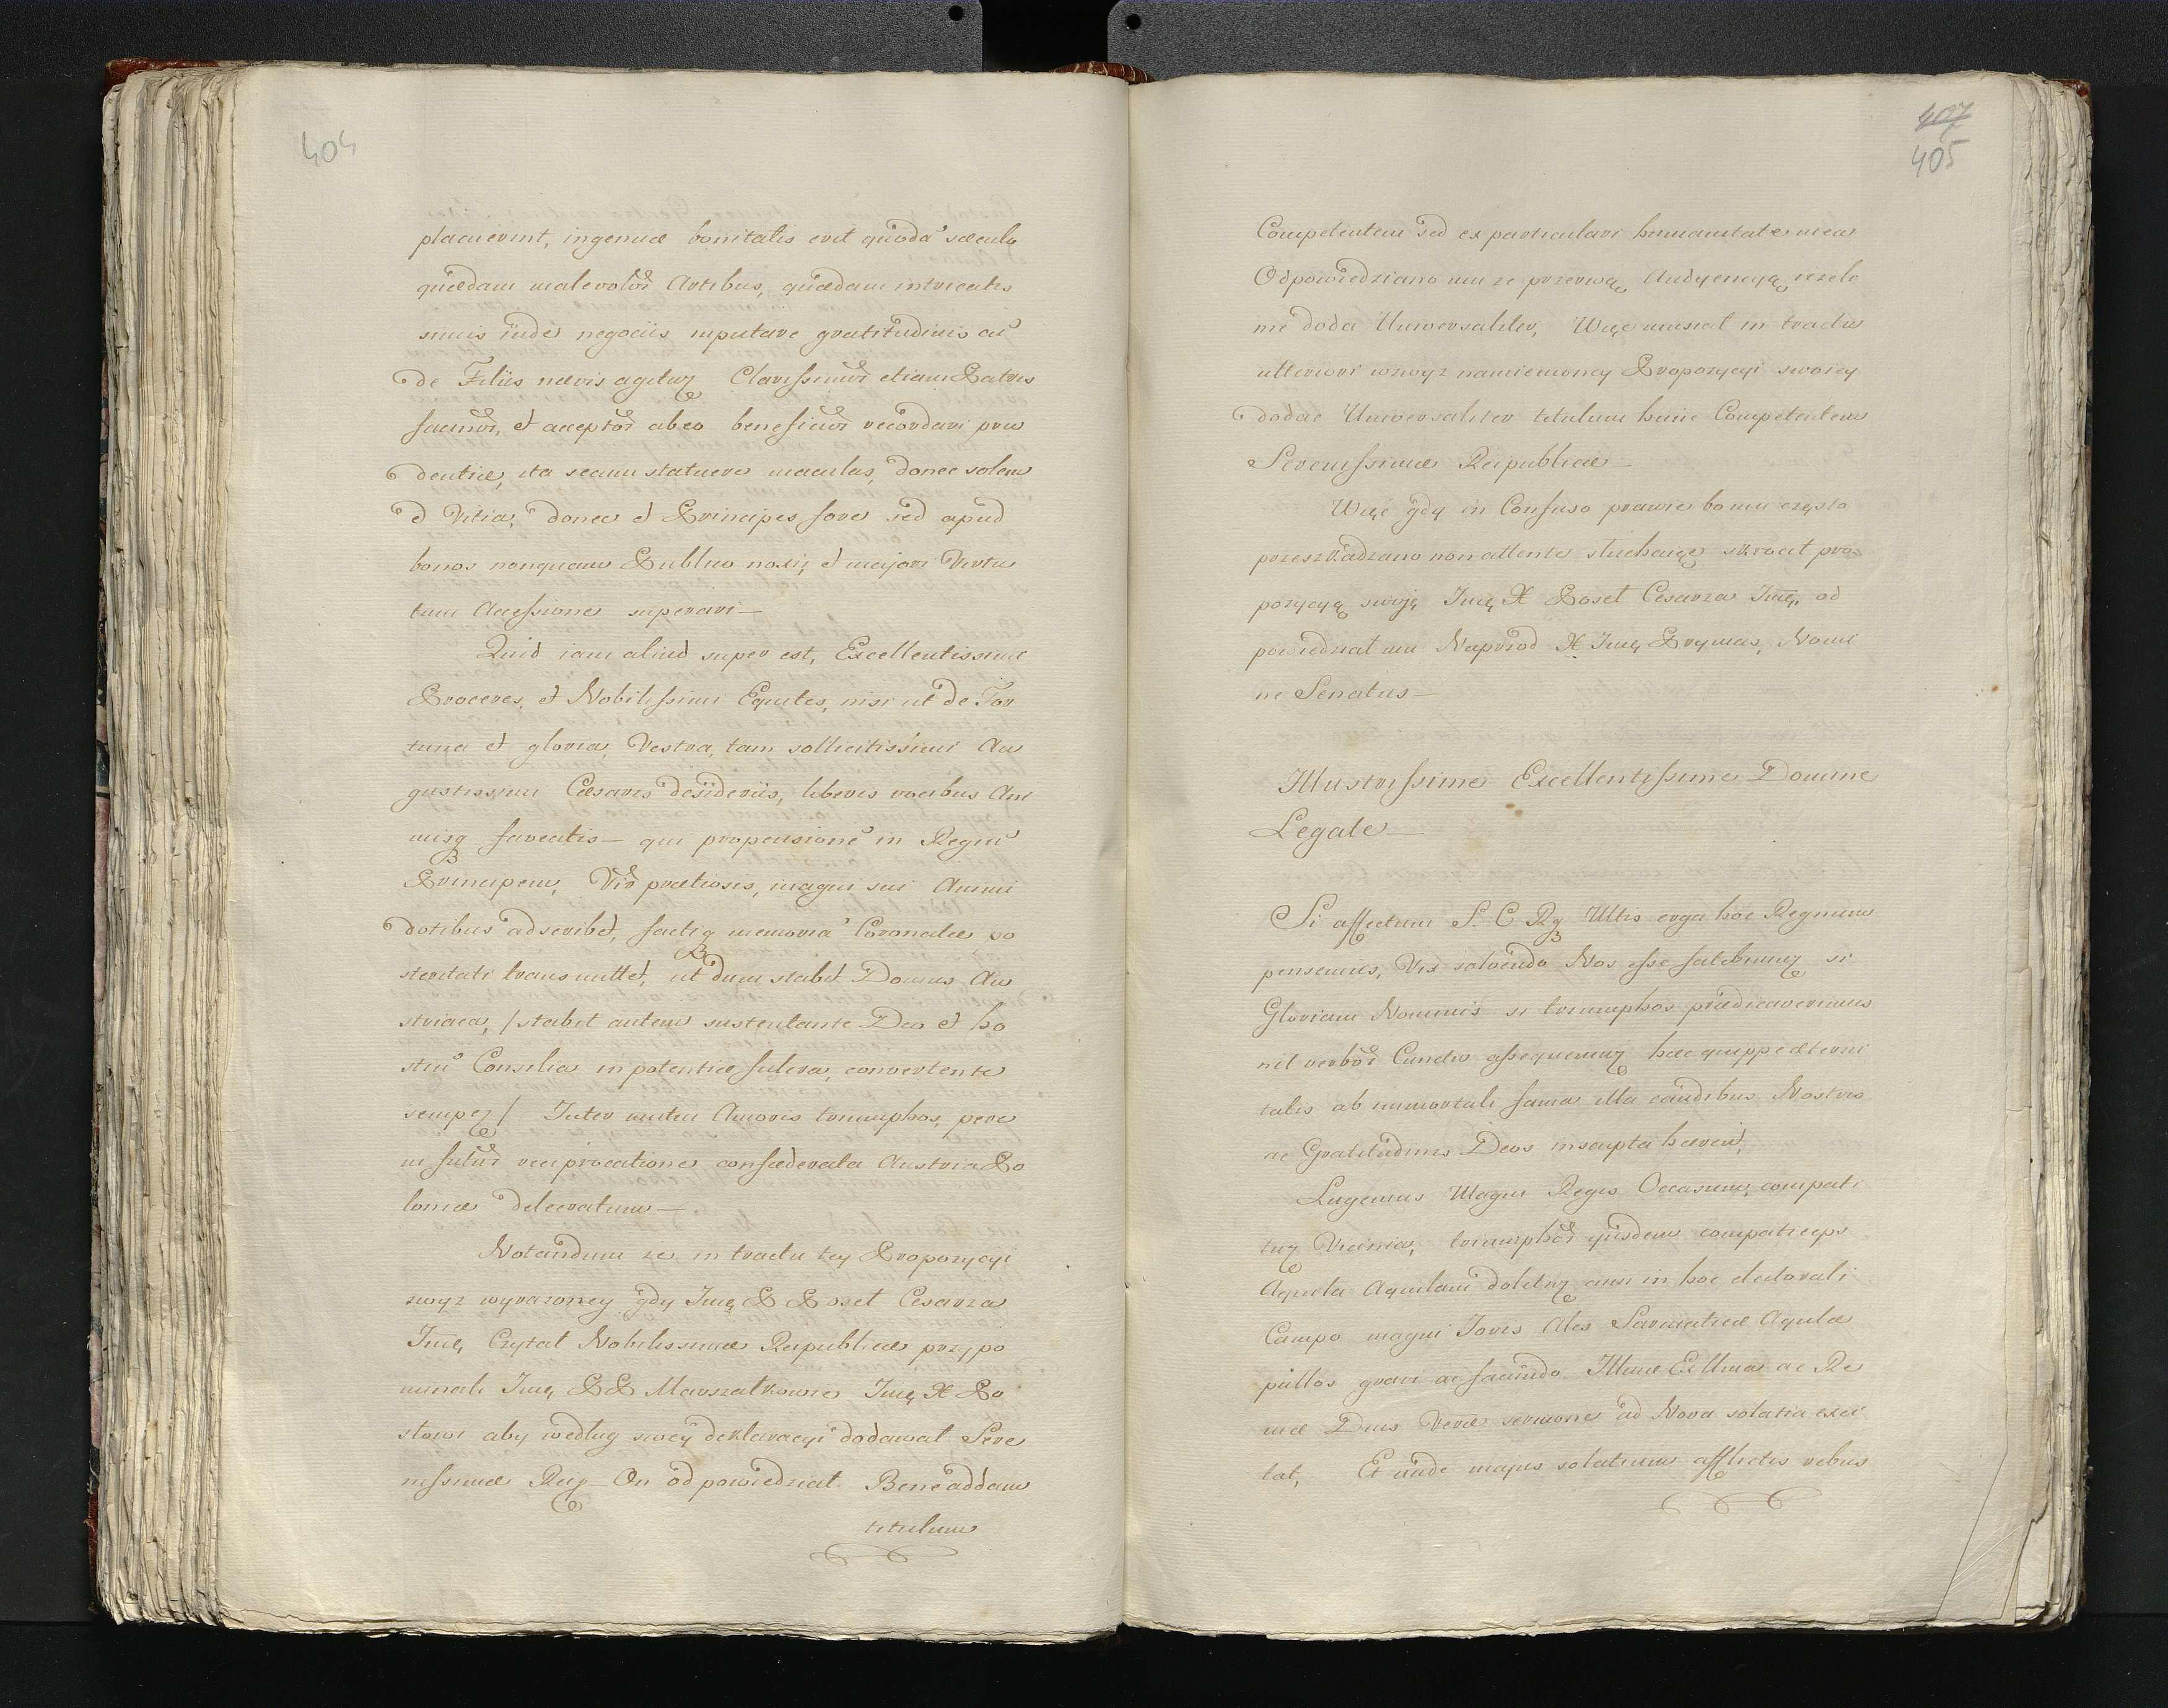 404
placuerint, ingenuæ bonitatis erit quoda sæculo
quædam malevolor Artibus, quædam intricatis
simis inde negociis imputare gratitudinis cu
de Filiis nævis agitur Clarissimor etiam Patris
facinor, et acceptor ab eo beneficior recordari pru
dentiæ, ita secum statuere maculas, donec solem
et Vitia, donec et Principes fore sed apud
bonos nonquam Publico noxi, et majori Virtu
tum Accessione superari —
Quid iam aliud super est, Excellentissimi
Proceres, et Nobilissimi Equites, nisi ut de For
tuna et gloria, Vestra, tam sollicitissimi Au
gustissimi Cæsaris desideriis, liberis vocibus Ani
misq faveatis — qui propensione in Regiu
Principem, Vir prætiosis, magni sui Animi
dotibus adscribet, factiq memoria Coronatæ po
steritati transmittet, ut dum stabit Domus Au
striaca, / stabit autem sustentante Deo et ho
stiu Consilia in potentiæ fulcra, convertente
semper / Inter mutui Amoris triumphos, pere
ni futur reciprocatione confæderata Austria Po
loniæ delectatum —
Notandum ze in tractu tey Propozycyi
zwyz wyrazoney gdy Jmę P Poseł Cesarza
Jmę Czytał Nobilissimæ Reipublicæ przypo
minali Jmę PP Marszałkowie Jmę X Po
słowi aby według swey deklaracyi dodawał Sere
nissimæ Reip — On odpowiedział. Bene addam
titulum
407
405
Competentem sed ex particulari humanitate mea
Odpowiedziano mu ze przerwą Audyencyą jezele
nie doda Universaliter, Więc musiał in tractu
ulteriori wzwyz namienioney Propozycyi swoiey
dodac Universaliter titulum hunc Competentem
Serenissimæ Reipublicæ —
Więc gdy in Confuso prawie bo mu często
przeszkadzano non attente słuchaiąc skrocił pro
pozycyą swoję Jmę X Poseł Cesarza Jmę, od
powiedział mu Naprzod X Jmę Prymas, Nomi
ne Senatus —
Illustrissime Excellentissime Domine
Legate —
Si affectum S. C Rq Mtis erga hoc Regnum
pensemus, Vix solvendo Nos esse fatebimur si
Gloriam Nominis si triumphos prædicaverimus
nil verbor Cunctu assequemur hæc quippe æterni
tatis ab immortali fama illa laudibus Nostris
ac Gratitudinis Deos insculpta hæreut,
Lugemus Magni Regis Occasum, compati
tur Vicinia, triumphor ejusdem comparticeps
Aquila Aquilam dolitur cum in hoc electorali
Campo magni Jovis Ales Sarmaticæ Aquilæ
pullos gravi ac facundo Illmæ Exllmæ ac Re
mæ Dnis Vræ sermone ad Nova solatia exci
tat, Et unde majus solatium afflictis rebus